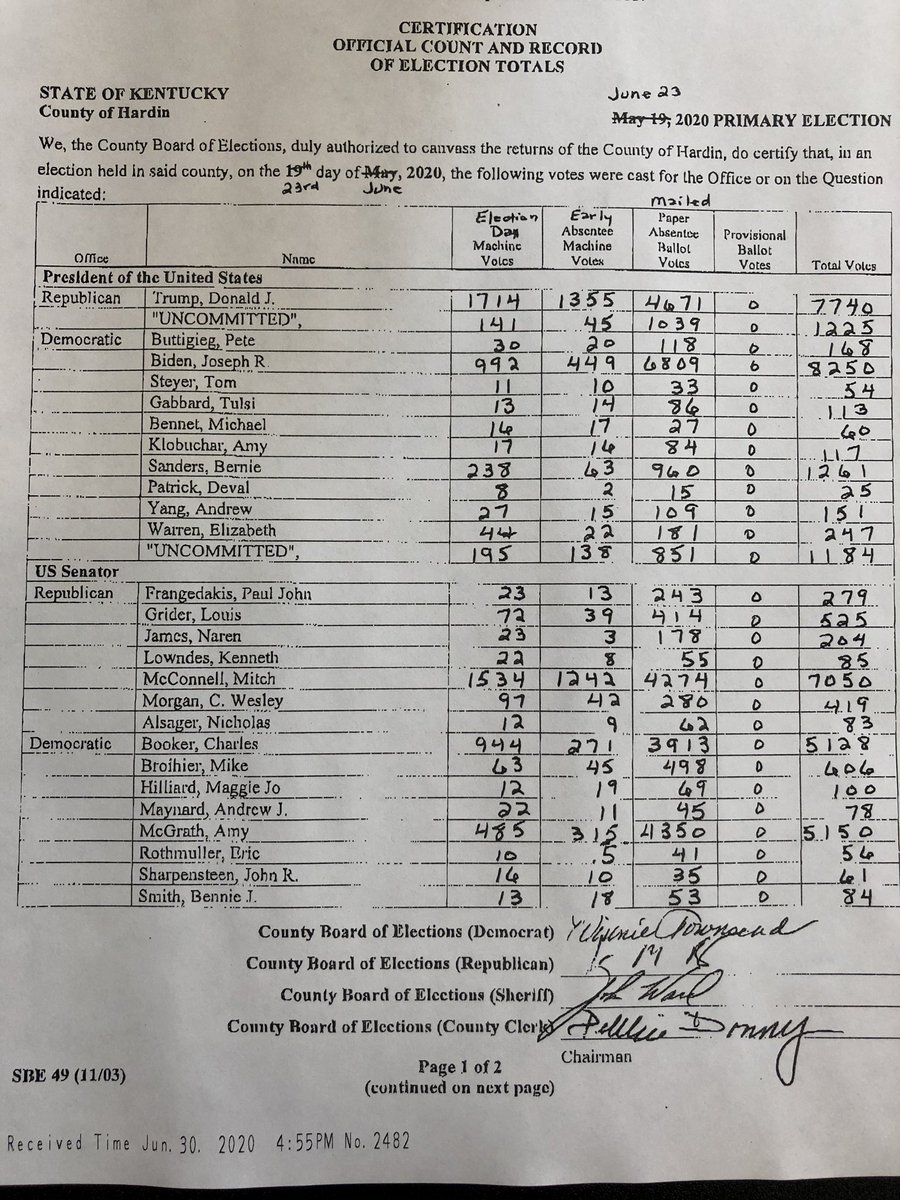 CERTIFICATION
OFFICIAL COUNT AND RECORD
OF ELECTION TOTALS
STATE OF KENTUCKY June 23
County of Hardin May 19, 2020 PRIMARY ELECTION
We, the County Board of Elections, duly authorized to canvass the returns of the County of Hardin, do certify that, in an
election held in said county, on the 19th day of May, 2020, the following votes were cast for the Office or on the Question
23rd June
indicated:
Office Name Election Day Machine Votes Early Absentee Machine Votes Mailed Paper Absentee Ballot Votes Provisional Ballot Votes Total Votes
President of the United States
Republican Trump, Donald J. 1714 1355 4671 0 7740
"UNCOMMITTED", 141 45 1039 0 1225
Democratic Buttigieg, Pete 30 20 118 0 168
Biden, Joseph R. 992 449 6809 0 8250
Steyer, Tom 11 10 33 0 54
Gabbard, Tulsi 13 14 86 0 113
Bennet, Michael 16 17 27 0 60
Klobuchar, Amy 17 16 84 0 117
Sanders, Bernie 238 63 960 0 1261
Patrick, Deval 8 2 15 0 25
Yang, Andrew 27 15 109 0 151
Warren, Elizabeth 44 22 181 0 247
"UNCOMMITTED", 195 138 851 0 1184
US Senator
Republican Frangedakis, Paul John 23 13 243 0 279
Grider, Louis 72 39 414 0 525
James, Naren 23 3 178 0 204
Lowndes, Kenneth 22 8 55 0 85
McConnell, Mitch 1534 1242 4274 0 7050
Morgan, C. Wesley 97 42 280 0 419
Alsager, Nicholas 12 9 62 0 83
Democratic Booker, Charles 944 271 3913 0 5128
Broihier, Mike 63 45 498 0 606
Hilliard, Maggie Jo 12 19 69 0 100
Maynard, Andrew J. 22 11 45 0 78
McGrath, Amy 485 315 4350 0 5150
Rothmuller, Eric 10 5 41 0 56
Sharpensteen, John R. 16 10 35 0 61
Smith, Bennie J. 13 18 53 0 84
County Board of Elections (Democrat) Townsend
County Board of Elections (Republican)
County Board of Elections (Sheriff) John Ward
County Board of Elections (County Clerk) Debbie Donnelly
Chairman
Page 1 of 2
SBE 49 (11/03)
(continued on next page)
Received Time Jun. 30. 2020 4:55PM No. 2482